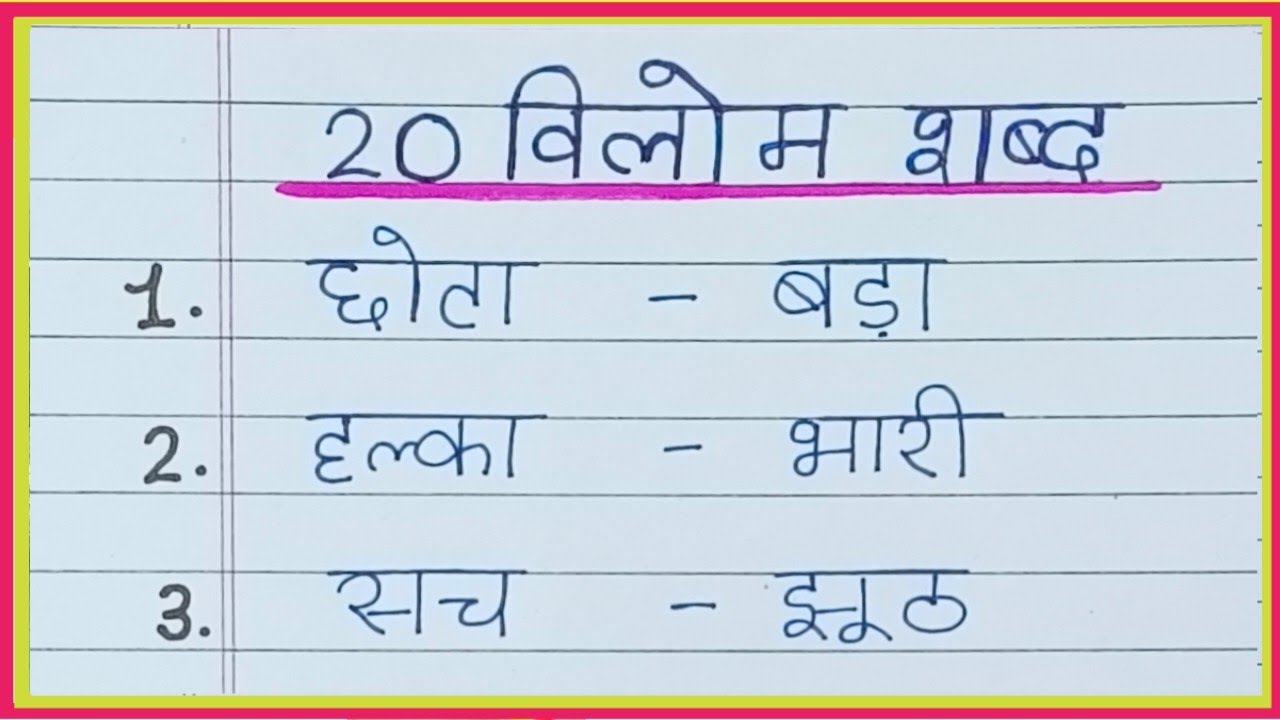 20 विलोम शब्द
1. छोटा - बड़ा
2. हल्का - भारी
3. सच - झूठ